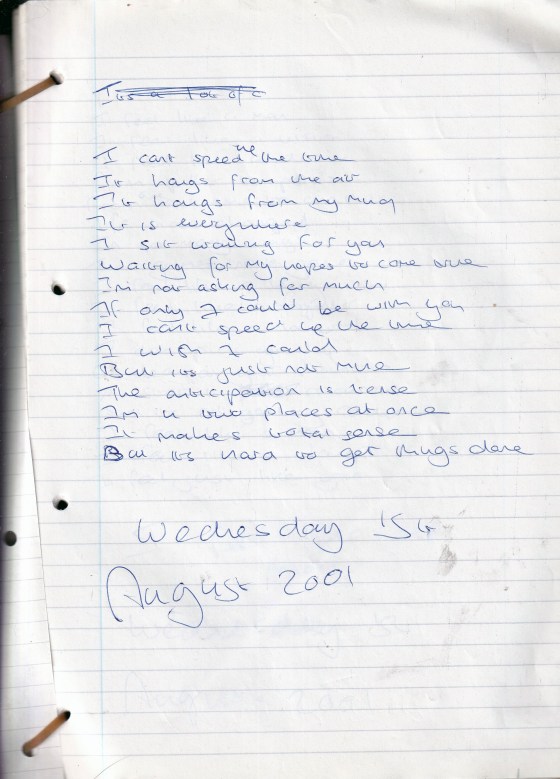 Its a lot of c
I cant speed up the time
It hangs from the air
It hangs from my mug
It is everywhere
I sit waiting for you
Waiting for my hopes to come true
Im not asking for much
If only I could be with you
I cant speed up the time
I wish I could
But its just not mine
The anticipation is tense
Im in two places at once
It makes total sense
But its hard to get things done
Wednesday 15t
August 2001